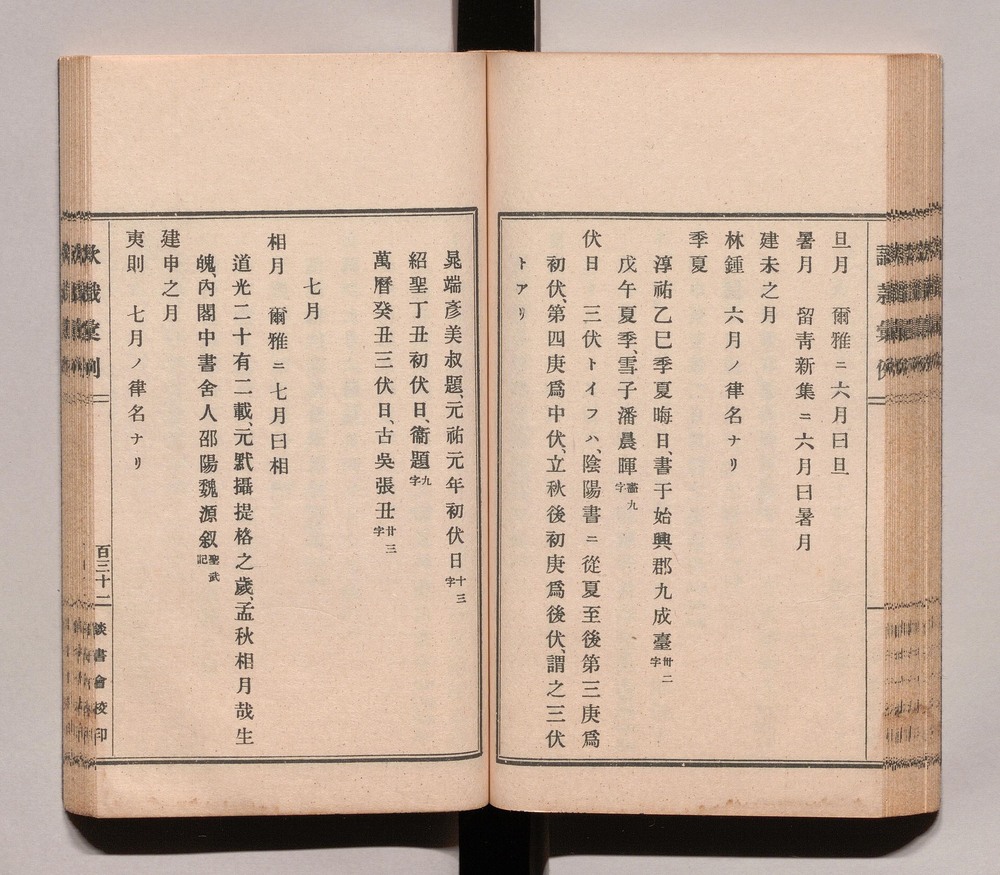 旦月　爾雅ニ六月曰旦
暑月　留靑新集ニ六月曰暑月
建未之月
林鍾　六月ノ律名ナリ
季夏
淳祐乙巳季夏晦日、書于始興郡九成臺 卌二字
戊午夏季、雪子潘晨暉 畫九字
伏日　三伏トイフハ、陰陽書ニ從夏至後第三庚爲
初伏、第四庚爲中伏、立秋後初庚爲後伏、謂之三伏
トアリ
晁端彥美叔題、元祐元年初伏日 十三字
紹聖丁丑初伏日、衞題 九字
萬曆癸丑三伏日、古吳張丑 廿三字
七月
相月　爾雅ニ七月曰相
道光二十有二載、元默攝提格之歲、孟秋相月哉生
魄、內閣中書舍人邵陽魏源叙 聖武記
建申之月
夷則　七月ノ律名ナリ
款識彙例
百三十二
談書會校印